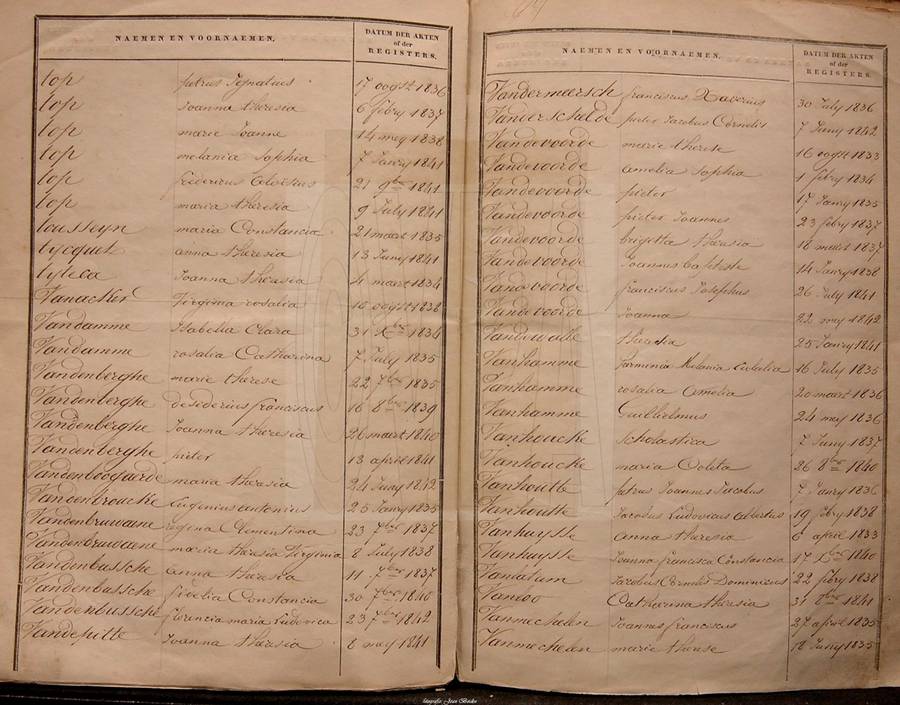 NAEMEN EN VOORNAEMEN. DATUM DER AKTEN
of der
REGISTERS.
top petrus Ignatius 17 oogst 1836
top Joanna theresia 6 febry 1837
top marie Joanne 14 mey 1838
top melania Sophia 7 Janry 1841
top fredericus Aloisius 21 9ber 1841
top maria theresia 9 July 1841
tousseyn maria Constancia 21 maart 1835
tycquet anna theresia 13 Juny 1841
tyteca Joanna theresia 4 maart 1834
Vanacker Virginia rosalia 10 oogst 1838
Vandamme Isabella Clara 31 Xber 1834
Vandamme rosalia Catharina 7 July 1835
Vandenberghe marie therese 22 7ber 1835
Vandenberghe desiderius franciscus 16 8ber 1839
Vandenberghe Joanna theresia 26 maart 1840
Vandenberghe pieter 13 april 1841
Vandenbooguerde maria theresia 24 Juny 1842
Vandenbroucke Eugenius antonius 25 Janry 1835
Vandenbruwaene regina Clementina 23 7ber 1837
Vandenbruwaene maria theresia Virginia 8 July 1838
Vandenbussche anna theresia 11 7ber 1837
Vandenbussche fidelia Constancia 30 7ber 1840
Vandenbussche florencia maria Ludovica 23 7ber 1842
Vandeputte Joanna theresia 8 mey 1841
NAEMEN EN VOORNAEMEN. DATUM DER AKTEN
of der
REGISTERS.
Vandermeersch franciscus Xaverius 30 July 1836
Vanderschelde pieter Jacobus Cornelis 7 Juny 1842
Vandevoorde marie therese 16 oogst 1833
Vandevoorde amelia Sophia 1 febry 1834
Vandevoorde pieter 17 Janry 1835
Vandevoorde pieter Joannes 23 febry 1837
Vandevoorde brigetta theresia 18 maart 1837
Vandevoorde Joannes baptiste 14 Janry 1838
Vandevoorde franciscus Josephus 26 July 1841
Vandevoorde Joanna 22 mey 1842
theresia 25 Janry 1841
Vanhamme Melania Eulalia 16 July 1835
Vanhamme rosalia Amelia 20 maart 1836
Vanhamme Guilielmus 24 mey 1836
Vanhoucke Scholastica 7 Juny 1837
Vanhoucke maria Coleta 26 8ber 1840
Vanhoutte petrus Joannes Jacobus 7 Janry 1836
Vanhoutte Jacobus Ludovicus Albertus 19 febry 1838
Vanhuysse anna theresia 6 april 1833
Vanhuysse Joanna francisca Constancia 17 Xber 1840
Jacobus Dominicus 22 febry 1838
Vanloo Catharina theresia 31 8ber 1841
Vanmechelen Joannes franciscus 27 april 1835
Vanmechelen marie therese 18 Juny 1835